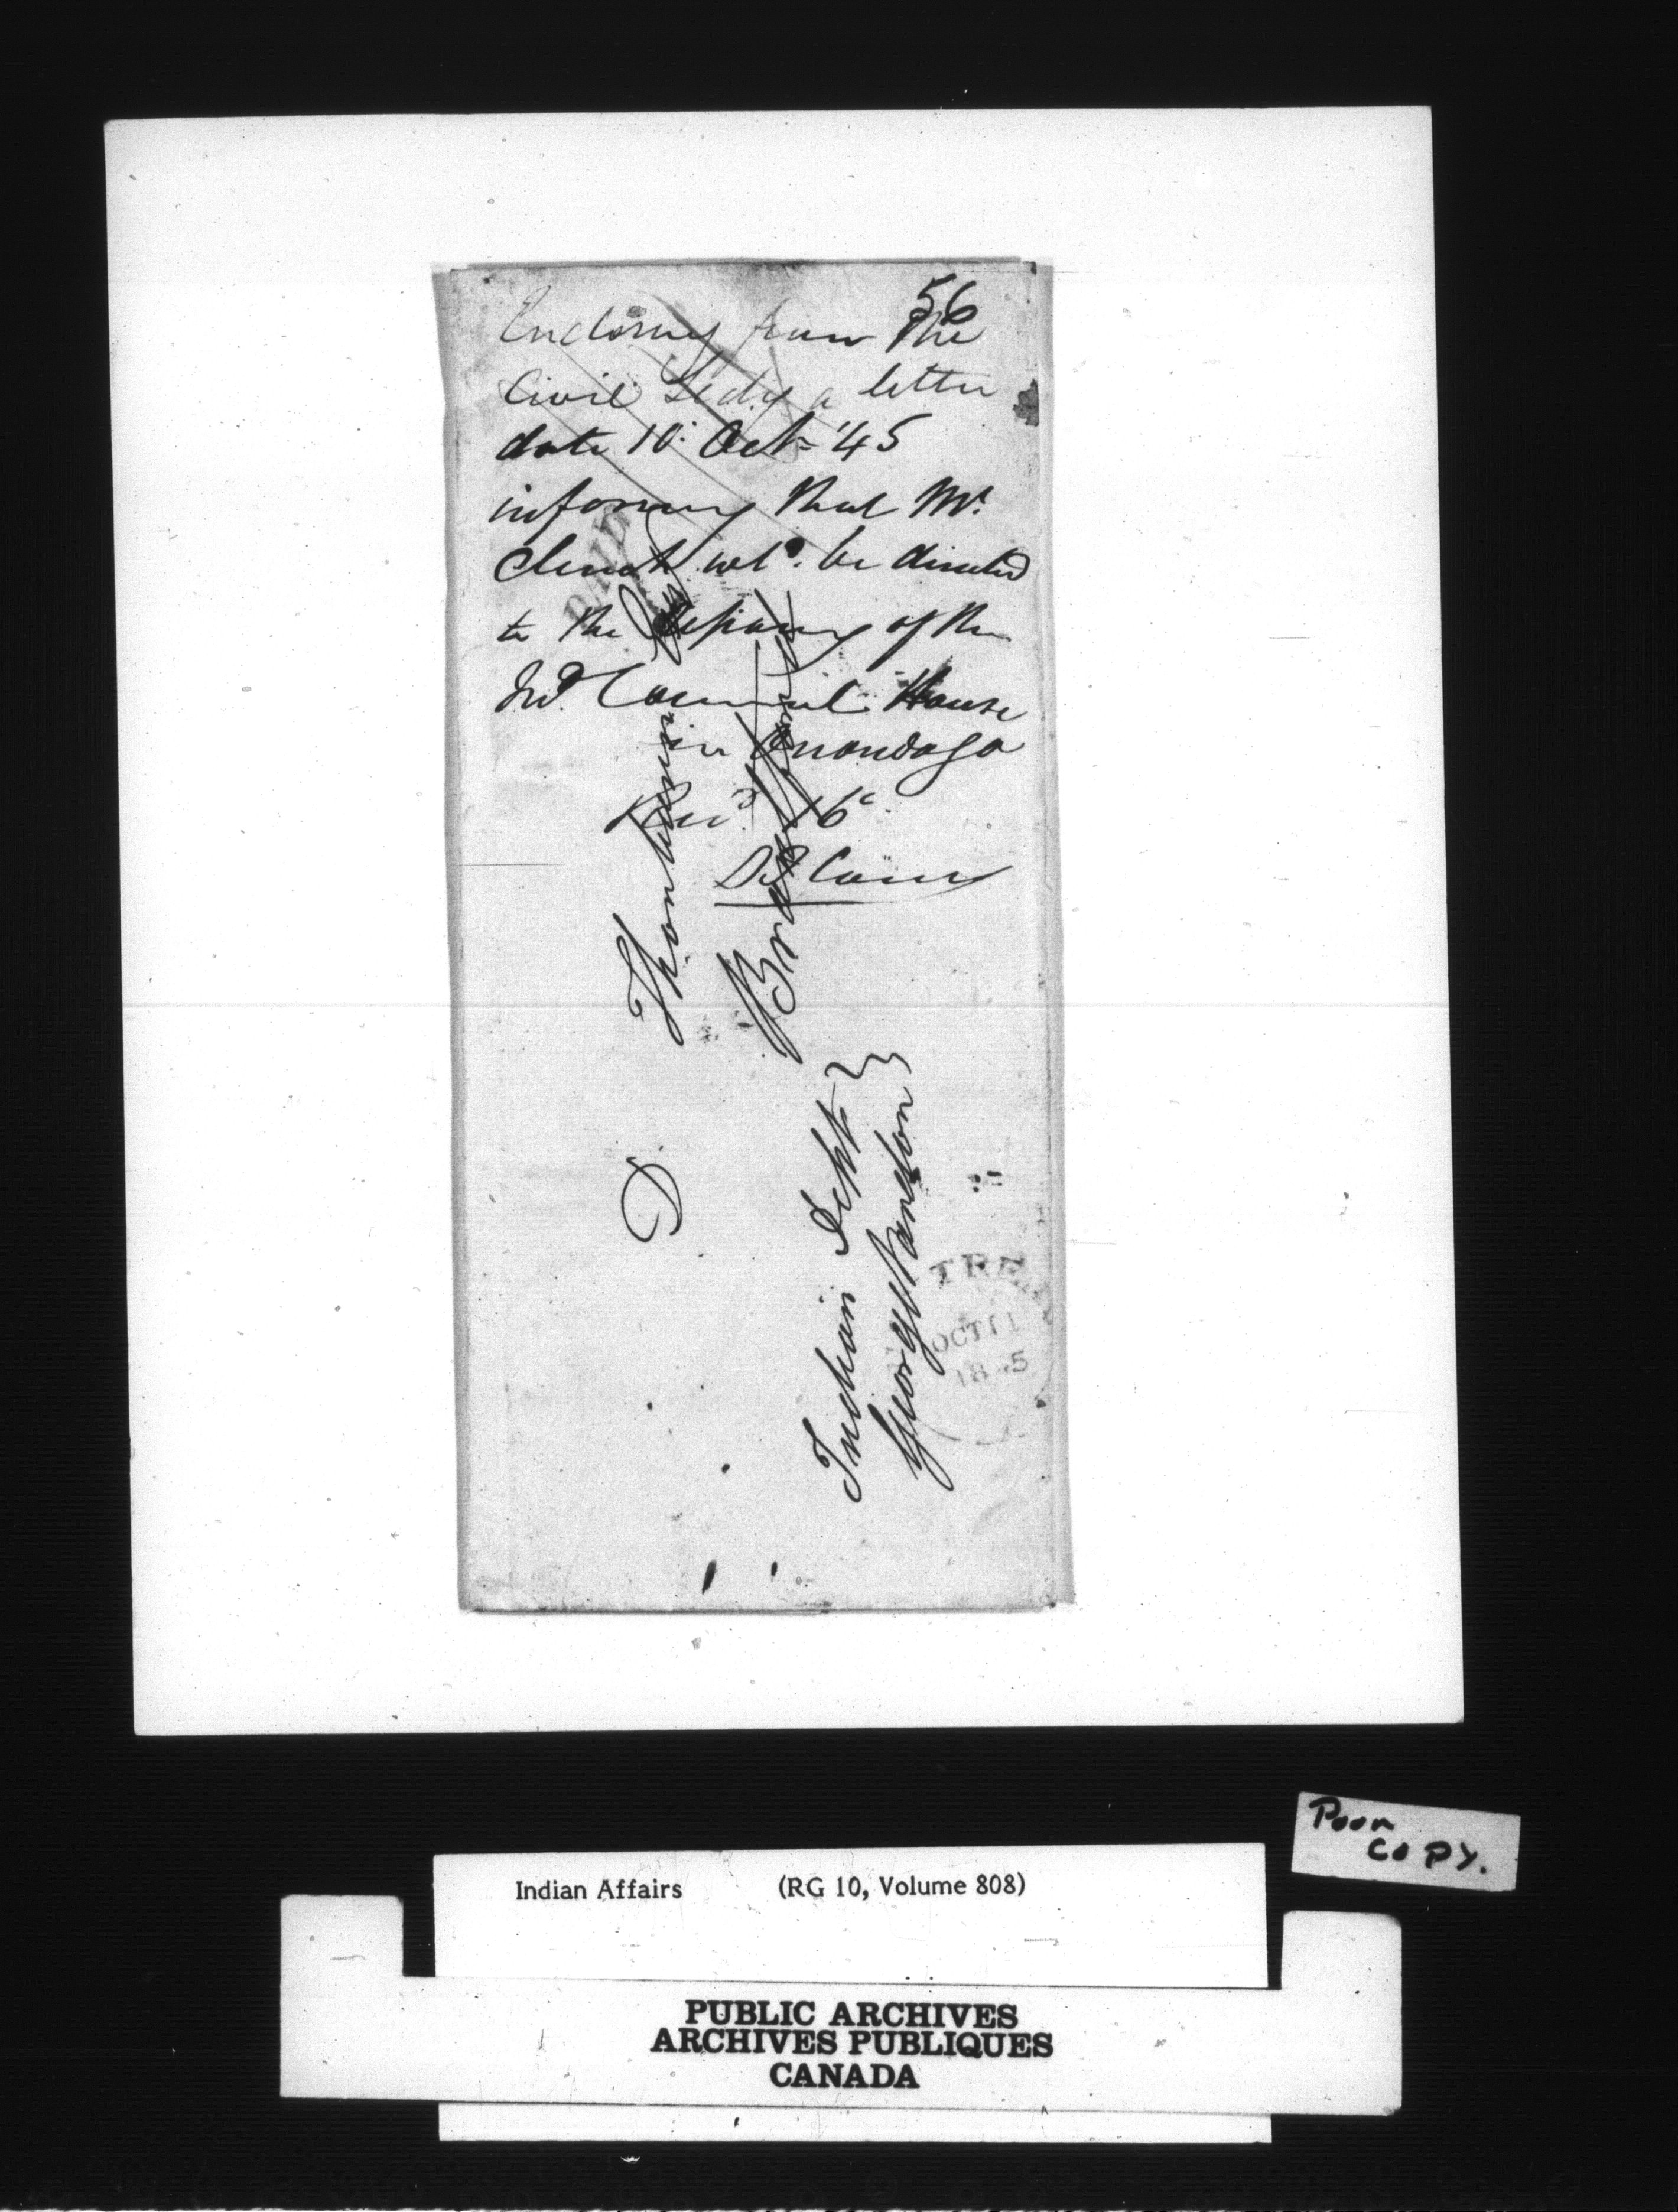 56
from the
Civil Secty a letter
date 10: Oct = '45
informg that Mr.
Clench wd. be directed
to the of the
Ind. Council House
in Onondaga
Recd. 16
PAID
D Thorburn
Brantford
Indian Dept
George Vardon
TRE
OCT 11
1845
Poor
COPY.
Indian Affairs (RG 10, Volume 808)
PUBLIC ARCHIVES
ARCHIVES PUBLIQUES
CANADA